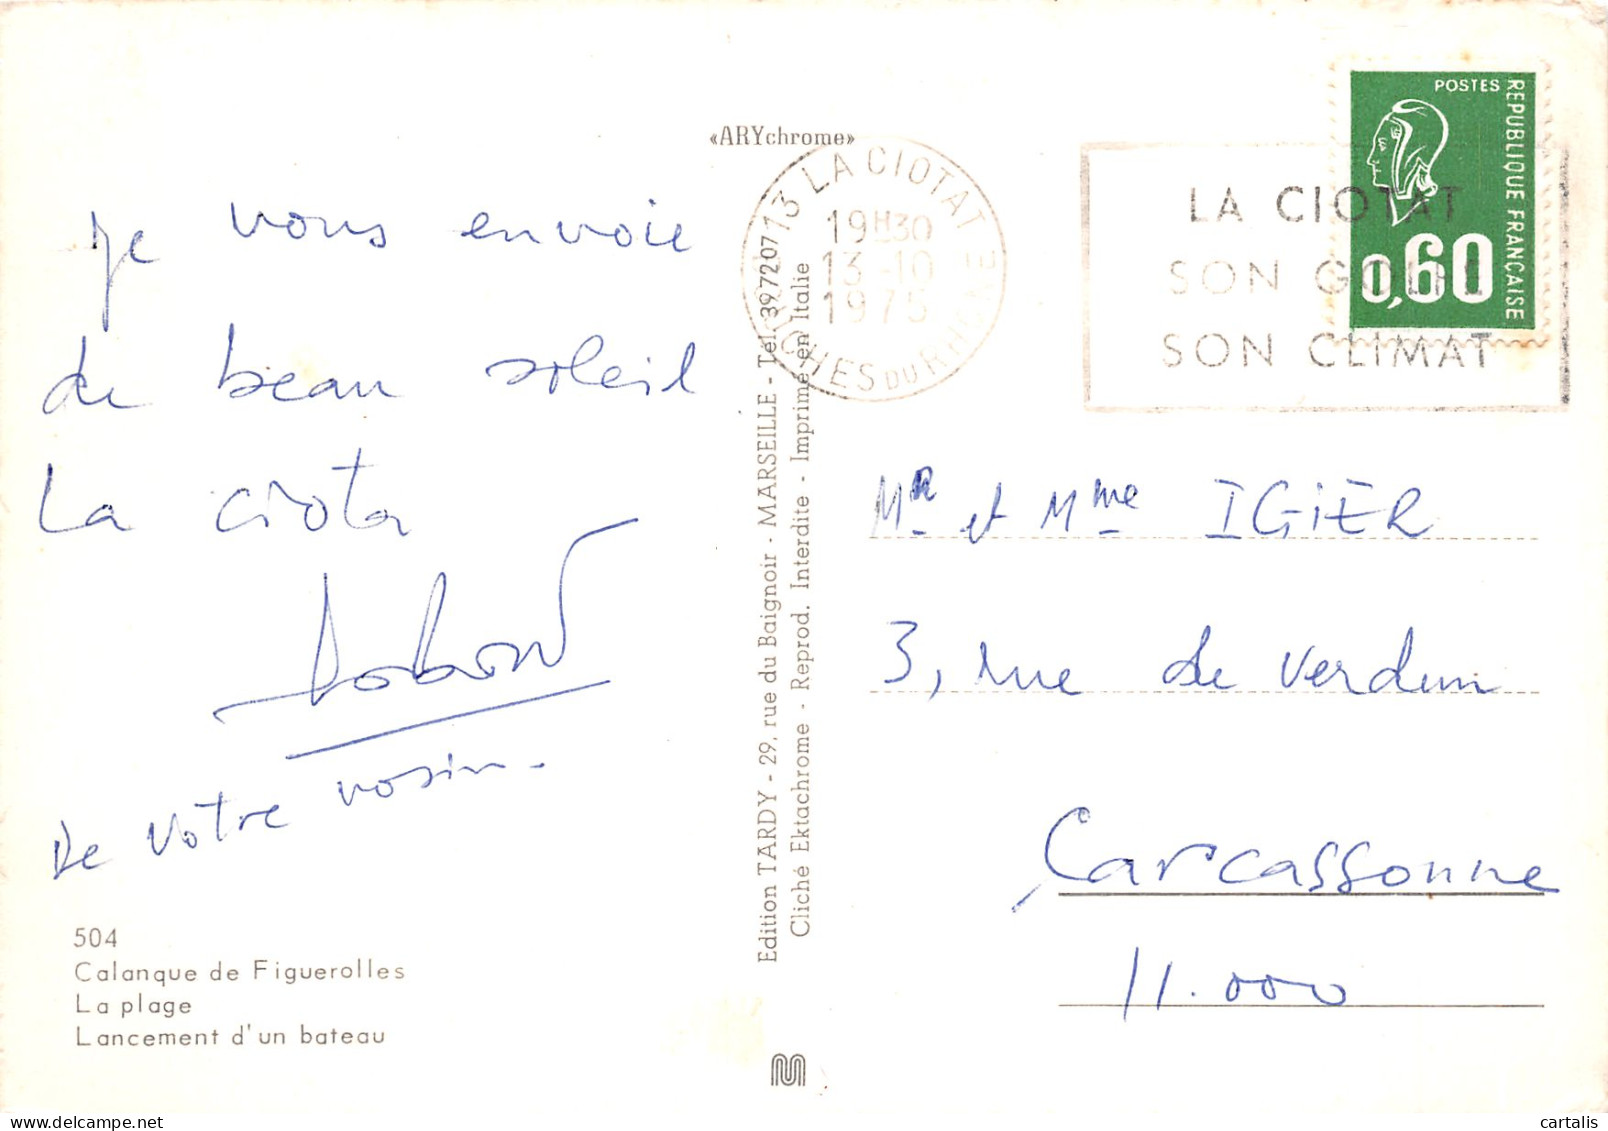 je vous envoie
du beau soleil
La Ciota
de votre voisin.
504
Calanque de Figuerolles
La plage
Lancement d'un bateau
«ARYchrome»
Edition TARDY - 29, rue du Baignoir - MARSEILLE - Tél. 397207
Cliché Ektachrome - Reprod. Interdite - Imprimé en Italie
13 LA CIOTAT
19H30
13-10
1975
BOUCHES DU RHONE
LA CIOTAT
SON GOLFE
SON CLIMAT
POSTES
REPUBLIQUE FRANÇAISE
0,60
MR et Mme IGIER
3, rue de Verdun
Carcassonne
11.000
delcampe.net
cartalis